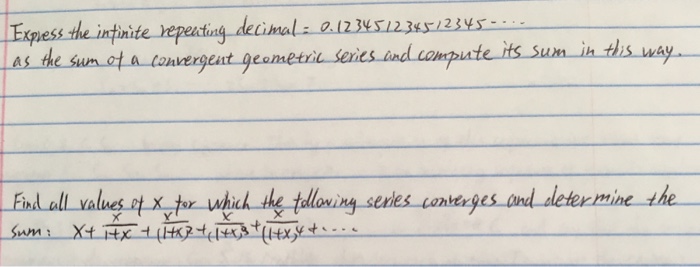 Express the infinite repeating decimal = 0.123451234512345-....
as the sum of a convergent geometric series and compute its sum in this way.
Find all values of x for which the following series converges and determine the
sum: x + x/(1+x) + x/(1+x)² + x/(1+x)³ + x/(1+x)⁴ + ....